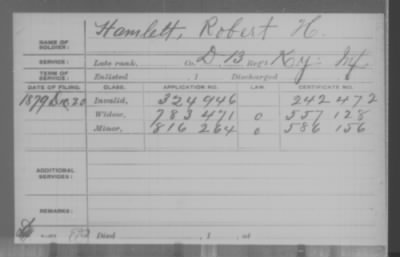 NAME OF SOLDIER: Hamlett, Robert H.
SERVICE: Late rank, Co. D. 13 Reg't Ky. Inf.
TERM OF SERVICE: Enlisted , 1 Discharged , 1
DATE OF FILING. CLASS. APPLICATION NO. LAW. CERTIFICATE NO.
1879 Dec. 20 Invalid, 324 946 242 472
Widow, 783 471 o 557 128
Minor, 816 264 o 586 156
ADDITIONAL SERVICES:
REMARKS:
Died , 1 , at